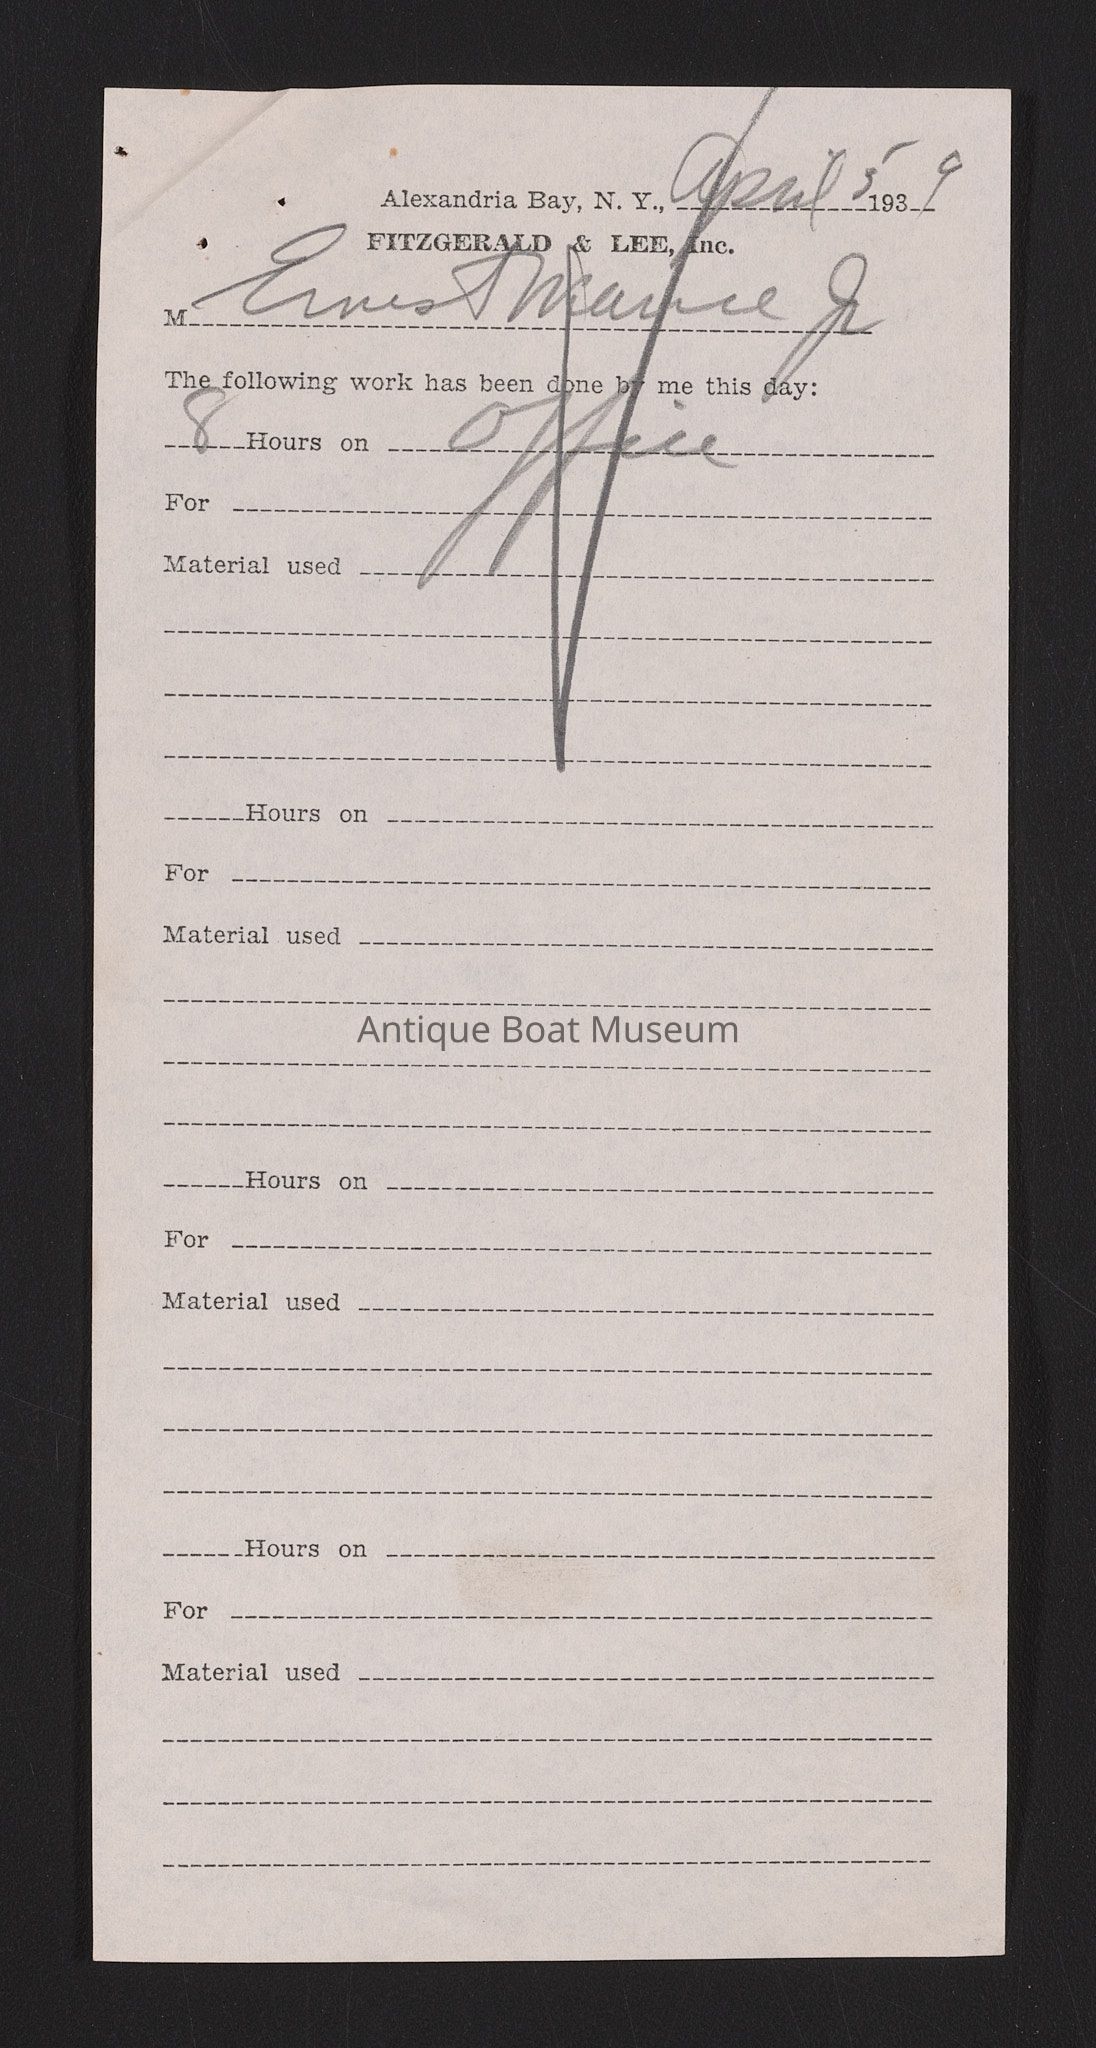 Alexandria Bay, N. Y., April 5 1939
FITZGERALD & LEE, Inc.
M Ernest Jr
The following work has been done by me this day:
8 Hours on office
For
Material used
Hours on
For
Material used
Antique Boat Museum
Hours on
For
Material used
Hours on
For
Material used